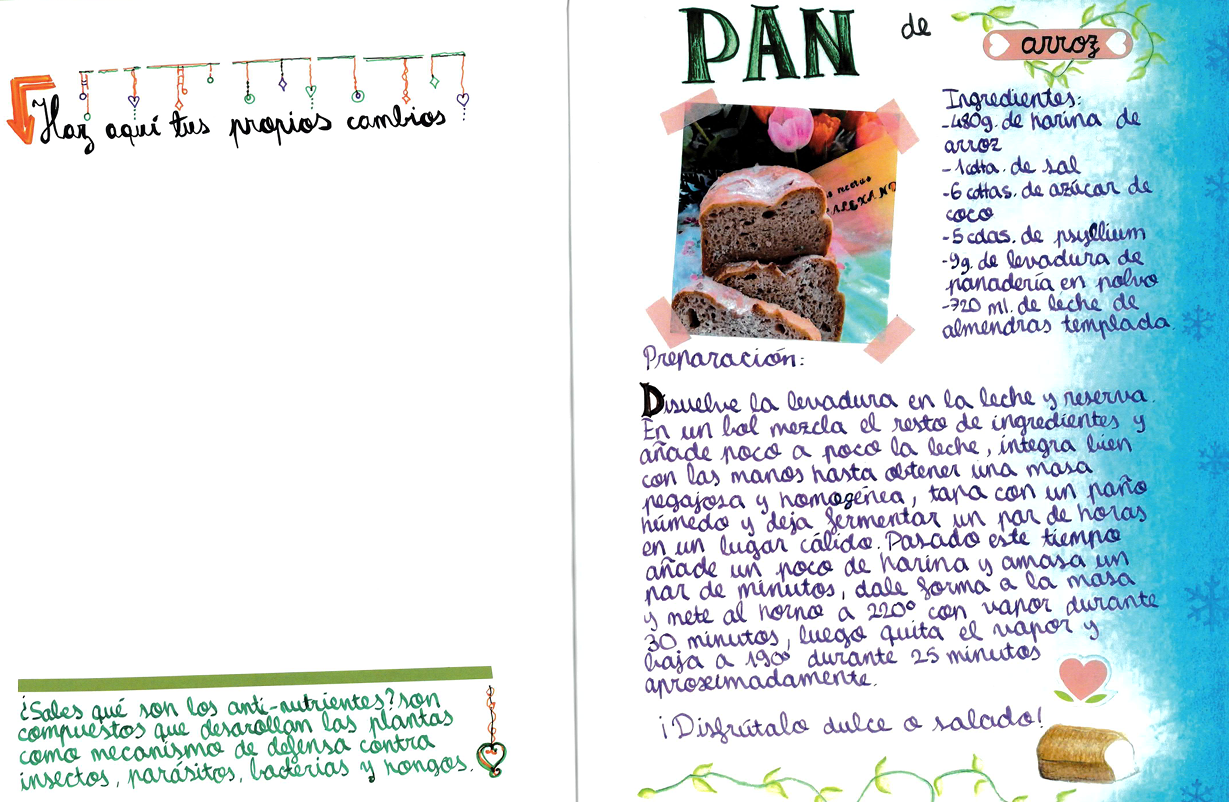 Haz aquí tus propios cambios
¿Sabes qué son los anti-nutrientes? son
compuestos que desarollan las plantas
como mecanismo de defensa contra
insectos, parásitos, bacterias y hongos.
PAN de arroz
Ingredientes:
-480g. de harina de
arroz
-1cdta. de sal
-6 cdtas. de azúcar de
coco
-5 cdas. de psyllium
-9g. de levadura de
panadería en polvo
-720 ml. de leche de
almendras templada
Preparación:
Disuelve la levadura en la leche y reserva.
En un bol mezcla el resto de ingredientes y
añade poco a poco la leche, integra bien
con las manos hasta obtener una masa
pegajosa y homogénea, tapa con un paño
húmedo y deja fermentar un par de horas
en un lugar cálido. Pasado este tiempo
añade un poco de harina y amasa un
par de minutos, dale forma a la masa
y mete al horno a 220º con vapor durante
30 minutos, luego quita el vapor y
baja a 190º durante 25 minutos
aproximadamente.
¡Disfrútalo dulce o salado!